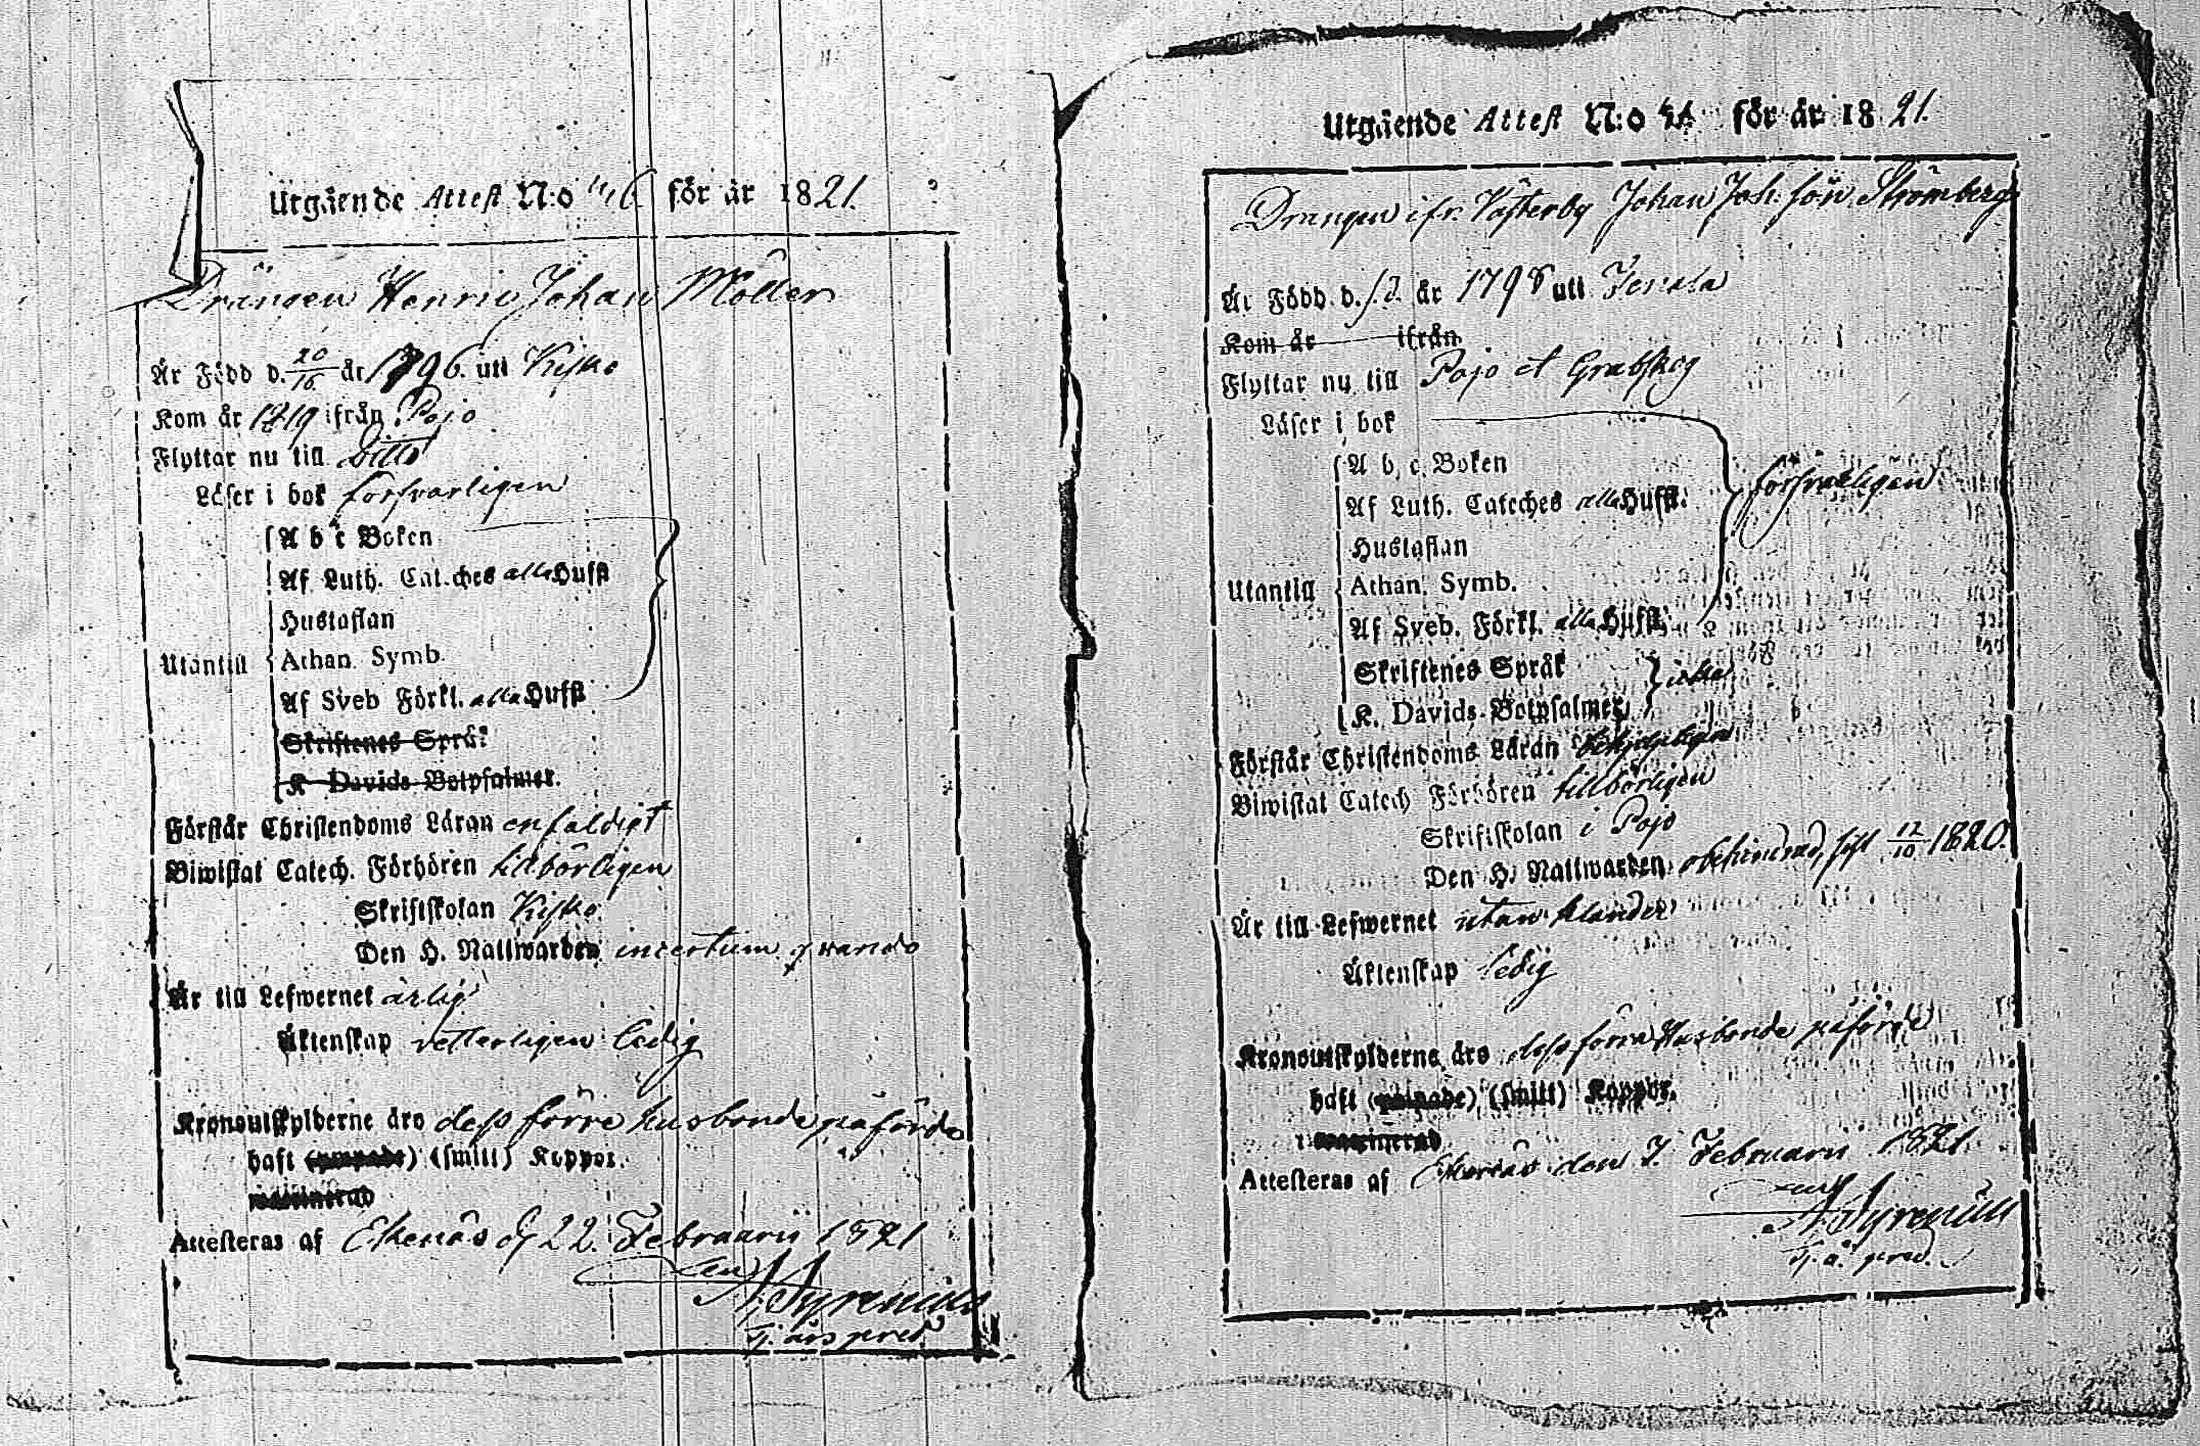 Utgående Attest N:o 46 för år 1821.
Drängen Henric Johan Möller
Är Född d. 20/16 år 1796. uti Kisko
Kom år 1819 ifrån Pojo
Flyttar nu till Ditto
Läser i bok försvarligen
A b c Boken
Af Luth. Cateches alla Hufst
Hustaflan
Utantill
Athan. Symb.
Af Sveb Förkl. alla Hufst
Skriftenes Språk
K Davids Botpsalmer.
Förstår Christendoms Läran enfaldigt
Biwistat Catech. Förhören tillbörligen
Skriftskolan Kisko
Den H. Nattwarden incertum
Är till Lefwernet ärlig
Äktenskap vetterligen ledig
Kronoutskylderne äro dess förre husbonde påförde
haft (smitt) Koppor.
Attesteras af Ekenäs d. 22. Februarii 1821
A. Syrenius
Utgående Attest N:o för år 1821.
Drängen ifr. Västerby Johan Joh. son Strömberg
Är Född d. år 1798 uti Tenala
Kom år ifrån
Flyttar nu till Pojo et Grabskog
Läser i bok
A b, c, Boken
Af Luth. Cateches alla Hufst: försvarligen
Hustaflan
Utantill
Athan. Symb.
Af Sveb. Förkl. alla Hufst.
Skriftenes Språk
icke
K. Davids Botpsalmer
Förstår Christendoms Läran behjelpligen
Biwistat Catech Förhören tillbörligen
Skriftskolan i Pojo
Den H. Nattwarden obehindrad, sist 12/10 1820.
Är till Lefwernet utan klander
Äktenskap ledig
Kronoutskylderne äro dess förra Husbonde påförde
haft (smitt) Koppor.
Attesteras af Ekenäs den 7. Februarii 1821
A. Syrenius